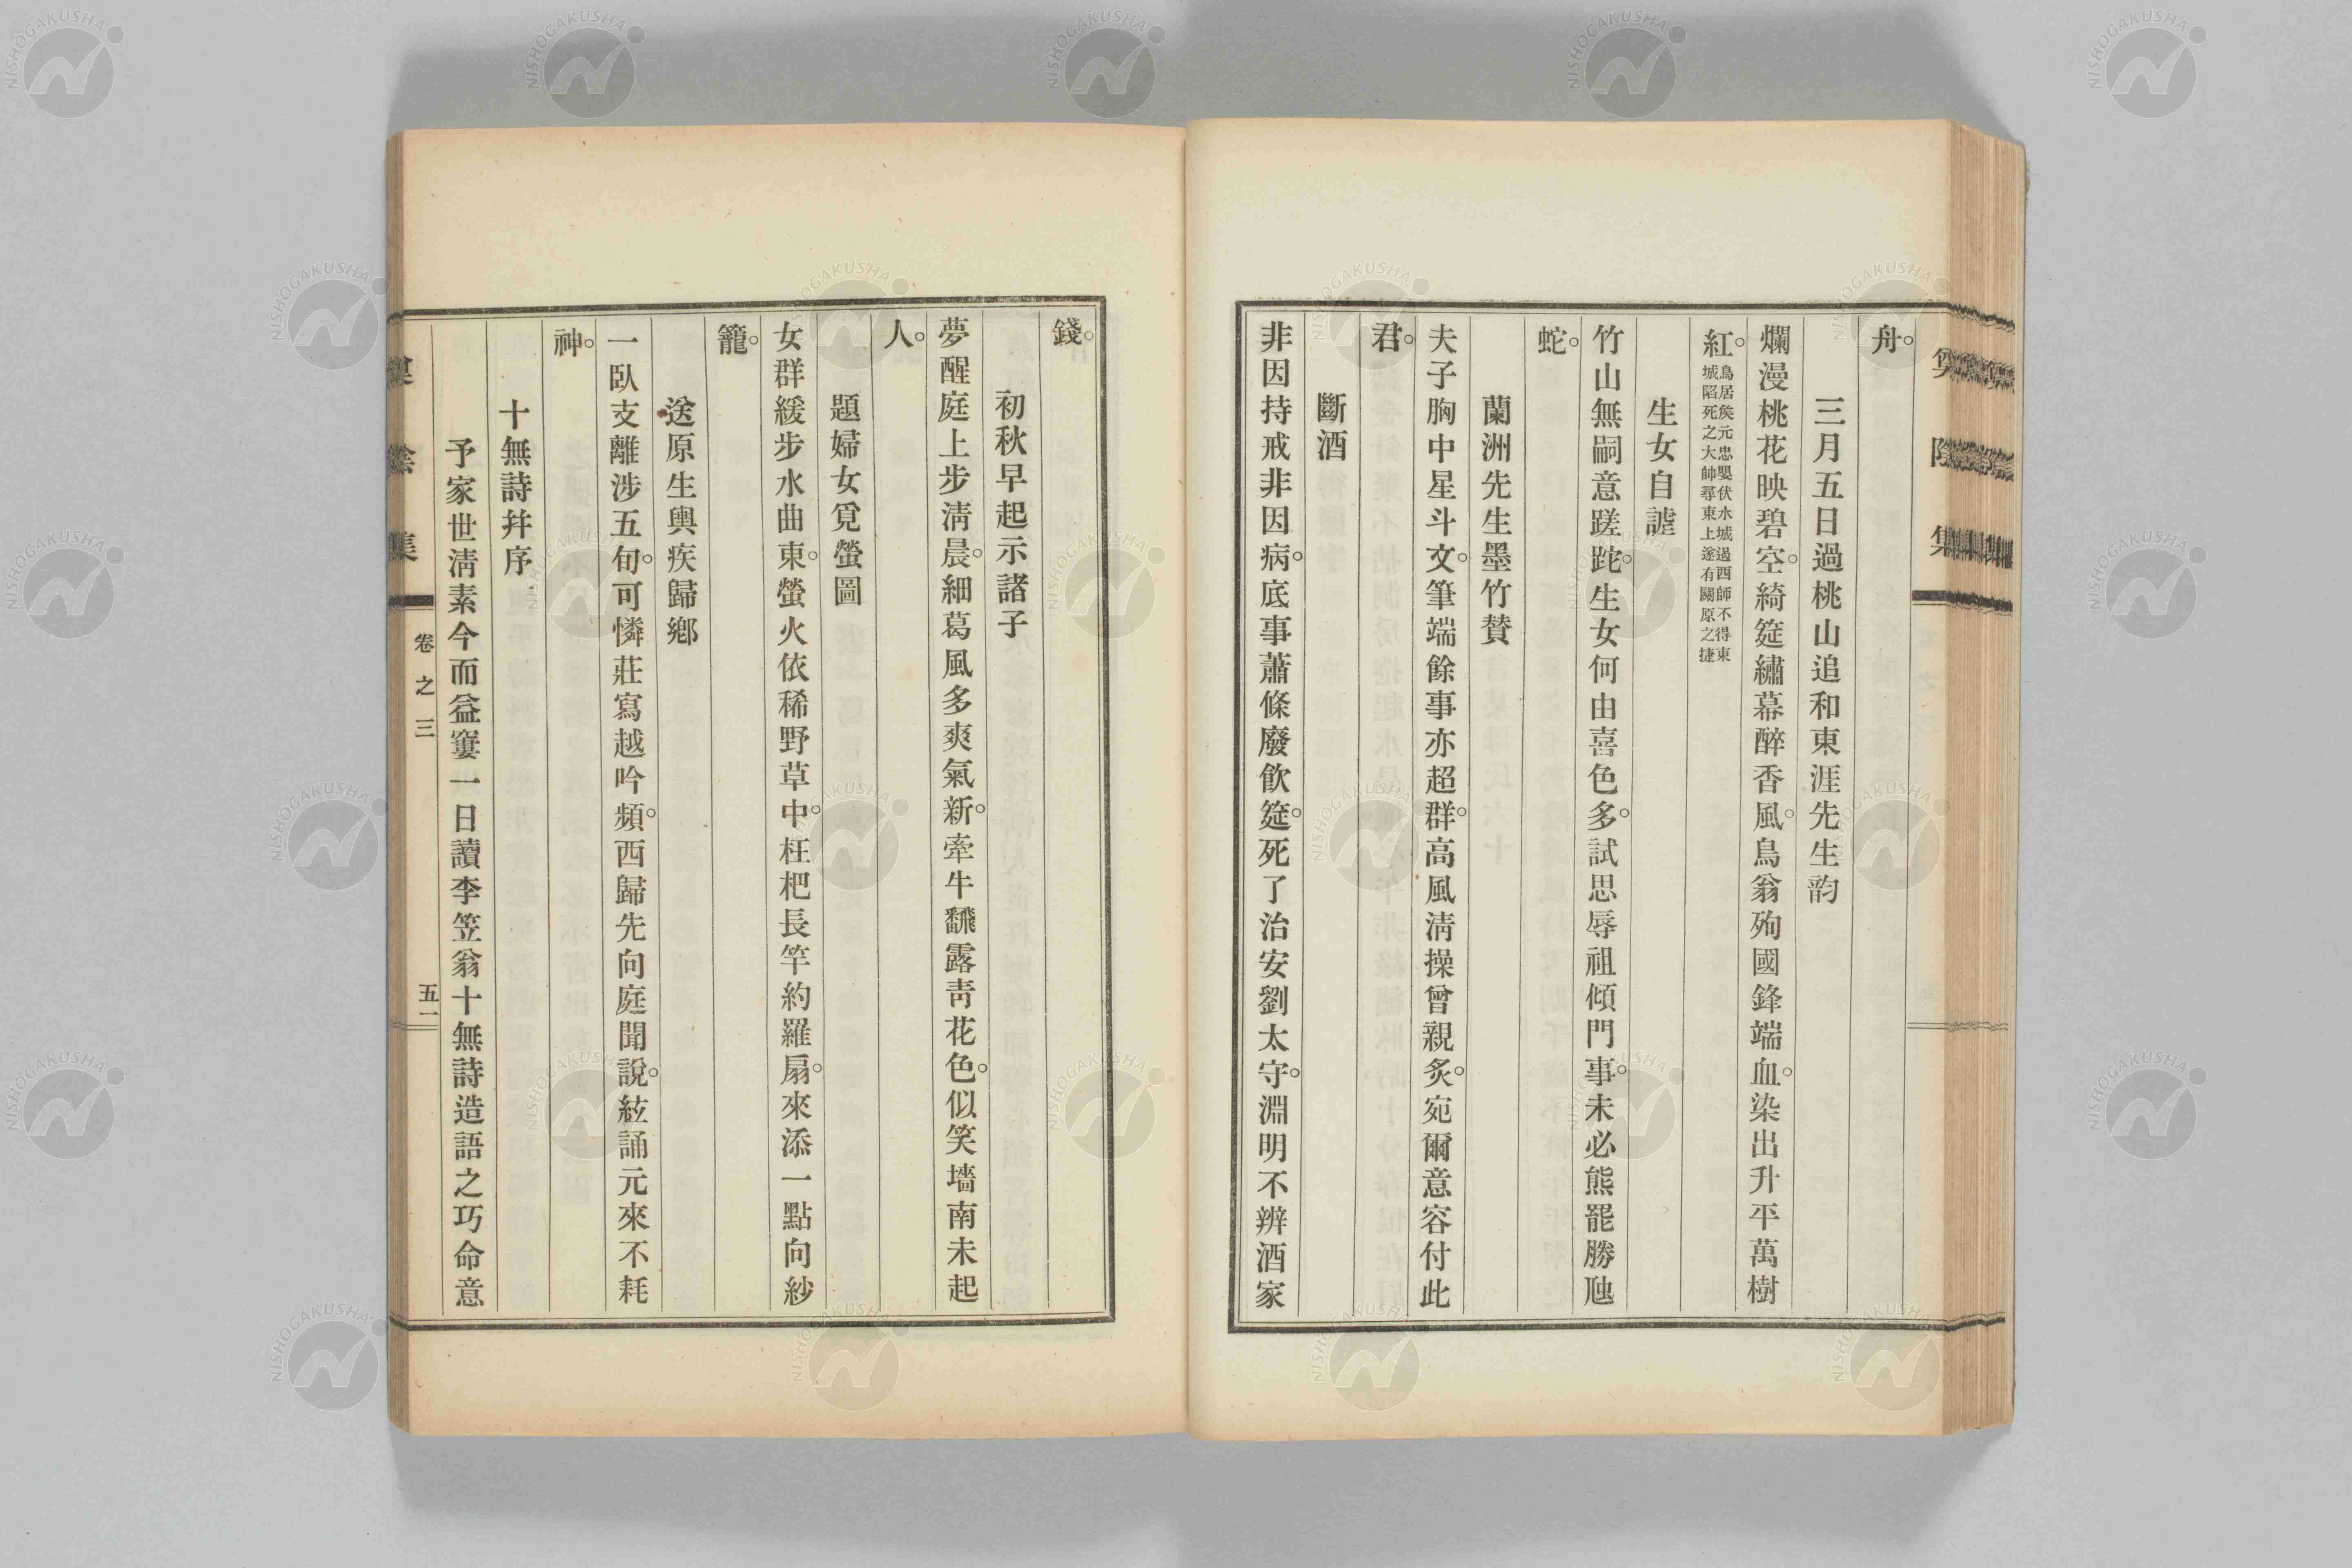 舟。
三月五日過桃山追和東涯先生韵
爛漫桃花映碧空。綺筵繡幕醉香風。鳥翁殉國鋒端血。染出升平萬樹
紅。鳥居矦元忠嬰伏水城遏西師不得東城陷死之大帥尋東上遂有關原之捷
生女自謔
竹山無嗣意蹉跎。生女何由喜色多。試思辱祖傾門事。未必熊羆勝虺
蛇。
蘭洲先生墨竹賛
夫子胸中星斗文。筆端餘事亦超群。高風淸操曾親炙。宛爾意容付此
君。
斷酒
非因持戒非因病。底事蕭條廢飮筵。死了治安劉太守。淵明不辨酒家
錢。
初秋早起示諸子
夢醒庭上步淸晨。細葛風多爽氣新。牽牛飜露靑花色。似笑墻南未起
人。
題婦女覓螢圖
女群緩步水曲東。螢火依稀野草中。枉杷長竿約羅扇。來添一點向紗
籠。
送原生輿疾歸鄕
一臥支離涉五旬。可憐莊寫越吟頻。西歸先向庭聞說。絃誦元來不耗
神。
十無詩幷序
予家世淸素今而益窶一日讀李笠翁十無詩造語之巧命意
卷之三
五一
NISHOGAKUSHA